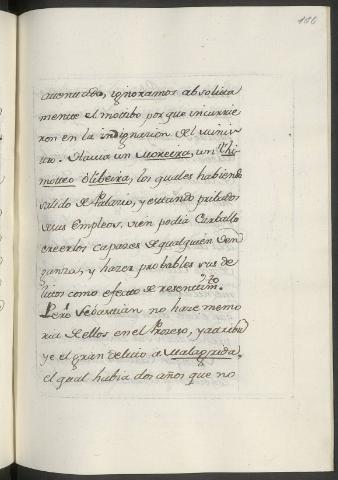 186
absoluta
mente el motibo por que incurrie
ron en la indignacion del minis
tro. Havia un Moreira, un Thi
moteo Olibeira, los quales habiendo
salido de Palacio, y estando pribados
de sus Empleos, vien podia Carballo
creerlos capazes de qualquier ven
ganza, y hazer probables sus de
litos como efecto de resentimto.
Pero Sebastian no haze memo
ria de ellos en el Prozeso, y atribu
ye el gran delito a Malagrida,
el qual habia dos años que no